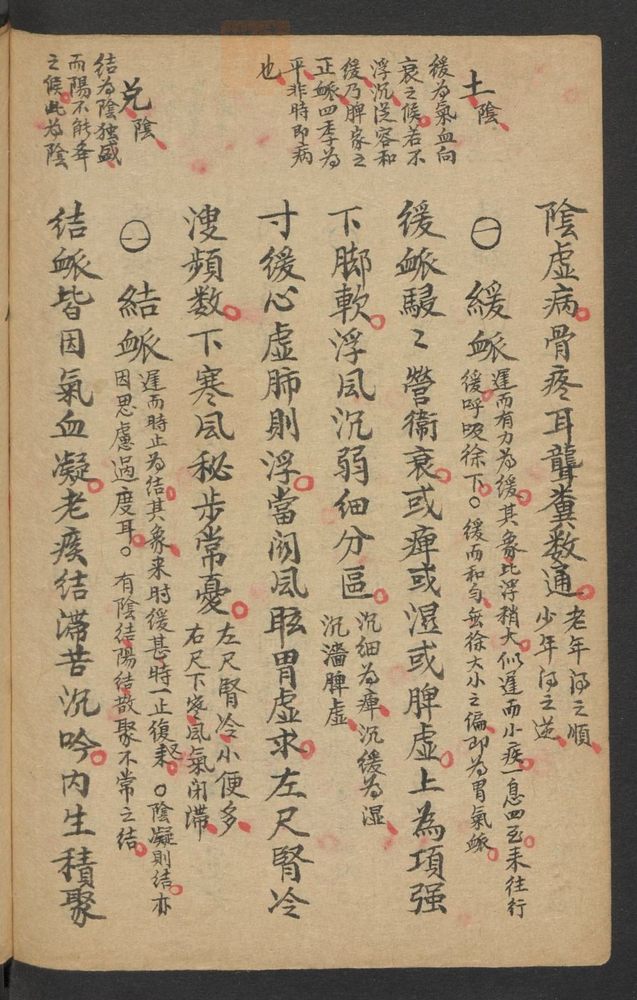 土陰
緩為氣血向
衰之候若不
浮沉從容和
緩乃脾家之
正脈四季為
平非時即病
也
兌陰
結為陰独盛
而陽不能奔
之候此為陰
陰虛病骨疼耳聾糞数通
老年得之順
少年得之逆
〇一 緩脈
遲而有力為緩其象比浮稍大似遲而小疾一息四至来往行
緩呼吸徐下〇緩而和勻無徐大小之偏即為胃氣脈
緩脈駸〻營衛衰或痺或濕或脾虛上為項强
下脚軟浮風沉弱細分區
沉細為痺沉緩為湿
沉濇脾虛
寸緩心虛肺則浮當関風眩胃虛求左尺腎冷
溲頻数下寒風秘步常憂
左尺腎冷小便多
右尺下寒風氣闭滞
〇一 結脈
遲而時止為結其象来時緩甚時一止復来〇陰凝則結亦
因思慮過度耳〇有陰結陽結散聚不常之結
結脈皆因氣血凝老痰結滞苦沉吟内生積聚